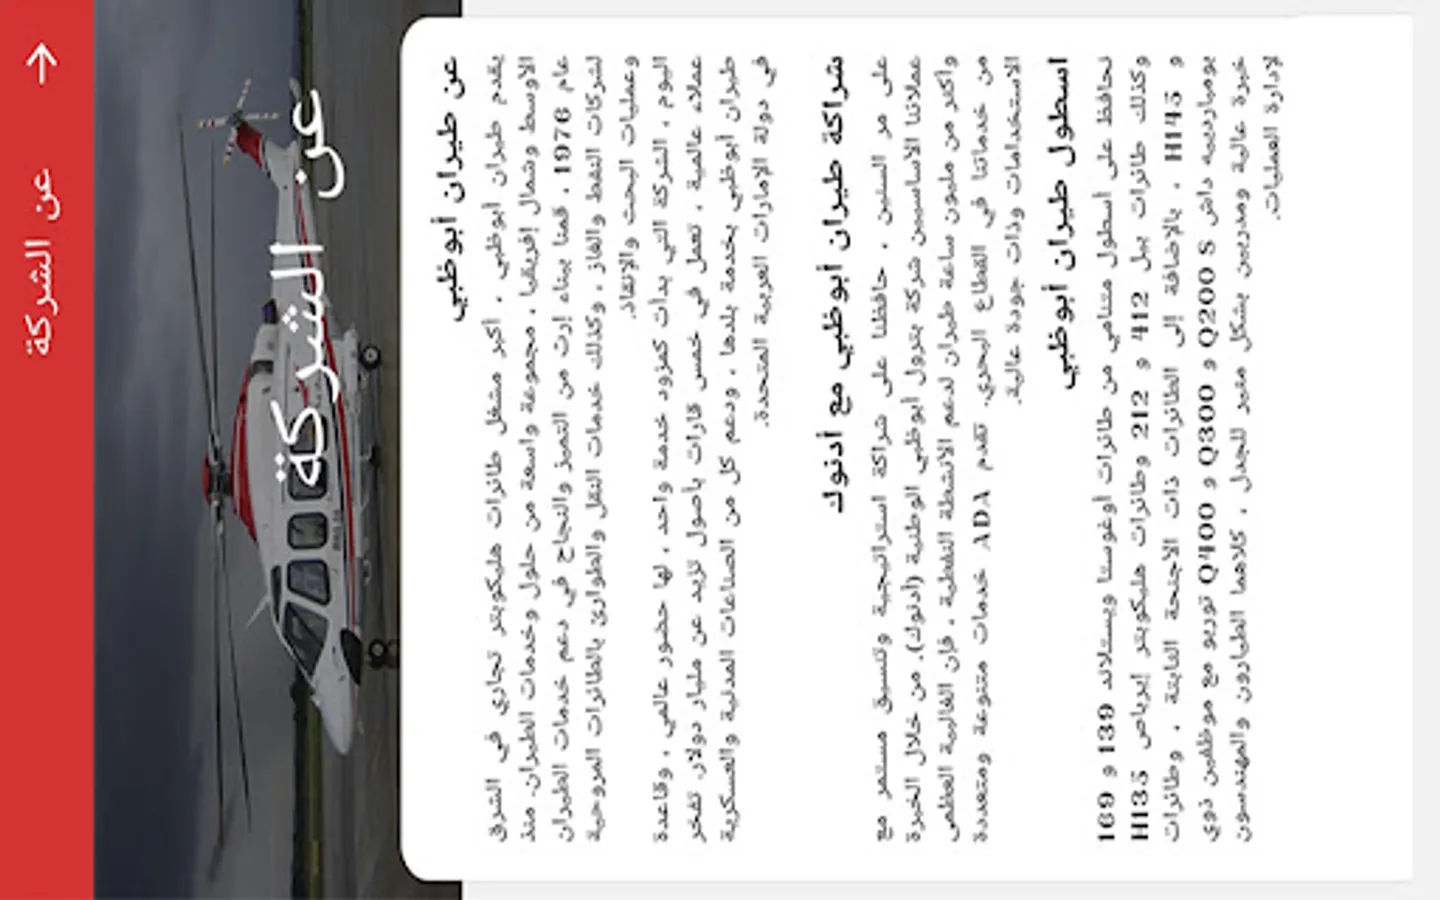 عن الشركة
عن الشركة
عن طيران أبوظبي
يقدم طيران أبوظبي ، أكبر مشغل طائرات هليكوبتر تجاري في الشرق
الأوسط وشمال إفريقيا ، مجموعة واسعة من حلول وخدمات الطيران. منذ
عام 1976 ، قمنا ببناء إرث من التميز والنجاح في دعم خدمات الطيران
لشركات النفط والغاز ، وكذلك خدمات النقل والطوارئ بالطائرات المروحية
وعمليات البحث والإنقاذ.
اليوم ، الشركة التي بدأت كمزود خدمة واحد ، لها حضور عالمي ، وقاعدة
عملاء عالمية ، تعمل في خمس قارات بأصول تزيد عن مليار دولار. تفخر
طيران أبوظبي بخدمة بلدها ، ودعم كل من الصناعات المدنية والعسكرية
في دولة الإمارات العربية المتحدة.
شراكة طيران أبوظبي مع أدنوك
على مر السنين ، حافظنا على شراكة استراتيجية وتنسيق مستمر مع
عملائنا الأساسيين شركة بترول أبوظبي الوطنية (أدنوك). من خلال الخبرة
وأكثر من مليون ساعة طيران لدعم الأنشطة النفطية ، فإن الغالبية العظمى
من خدماتنا في القطاع البحري. تقدم ADA خدمات متنوعة ومتعددة
الاستخدامات وذات جودة عالية.
اسطول طيران أبوظبي
نحافظ على أسطول متنامي من طائرات أوغوستا ويستلاند 139 و 169
وكذلك طائرات بيل 412 و 212 وطائرات هليكوبتر إيرباص H135
و H145 ، بالإضافة إلى الطائرات ذات الأجنحة الثابتة ، وطائرات
بومباردييه داش Q200 S و Q300 و Q400 توربو مع موظفين ذوي
خبرة عالية ومدربين بشكل مثير للجدل ، كلاهما الطيارون والمهندسون
لإدارة العمليات.